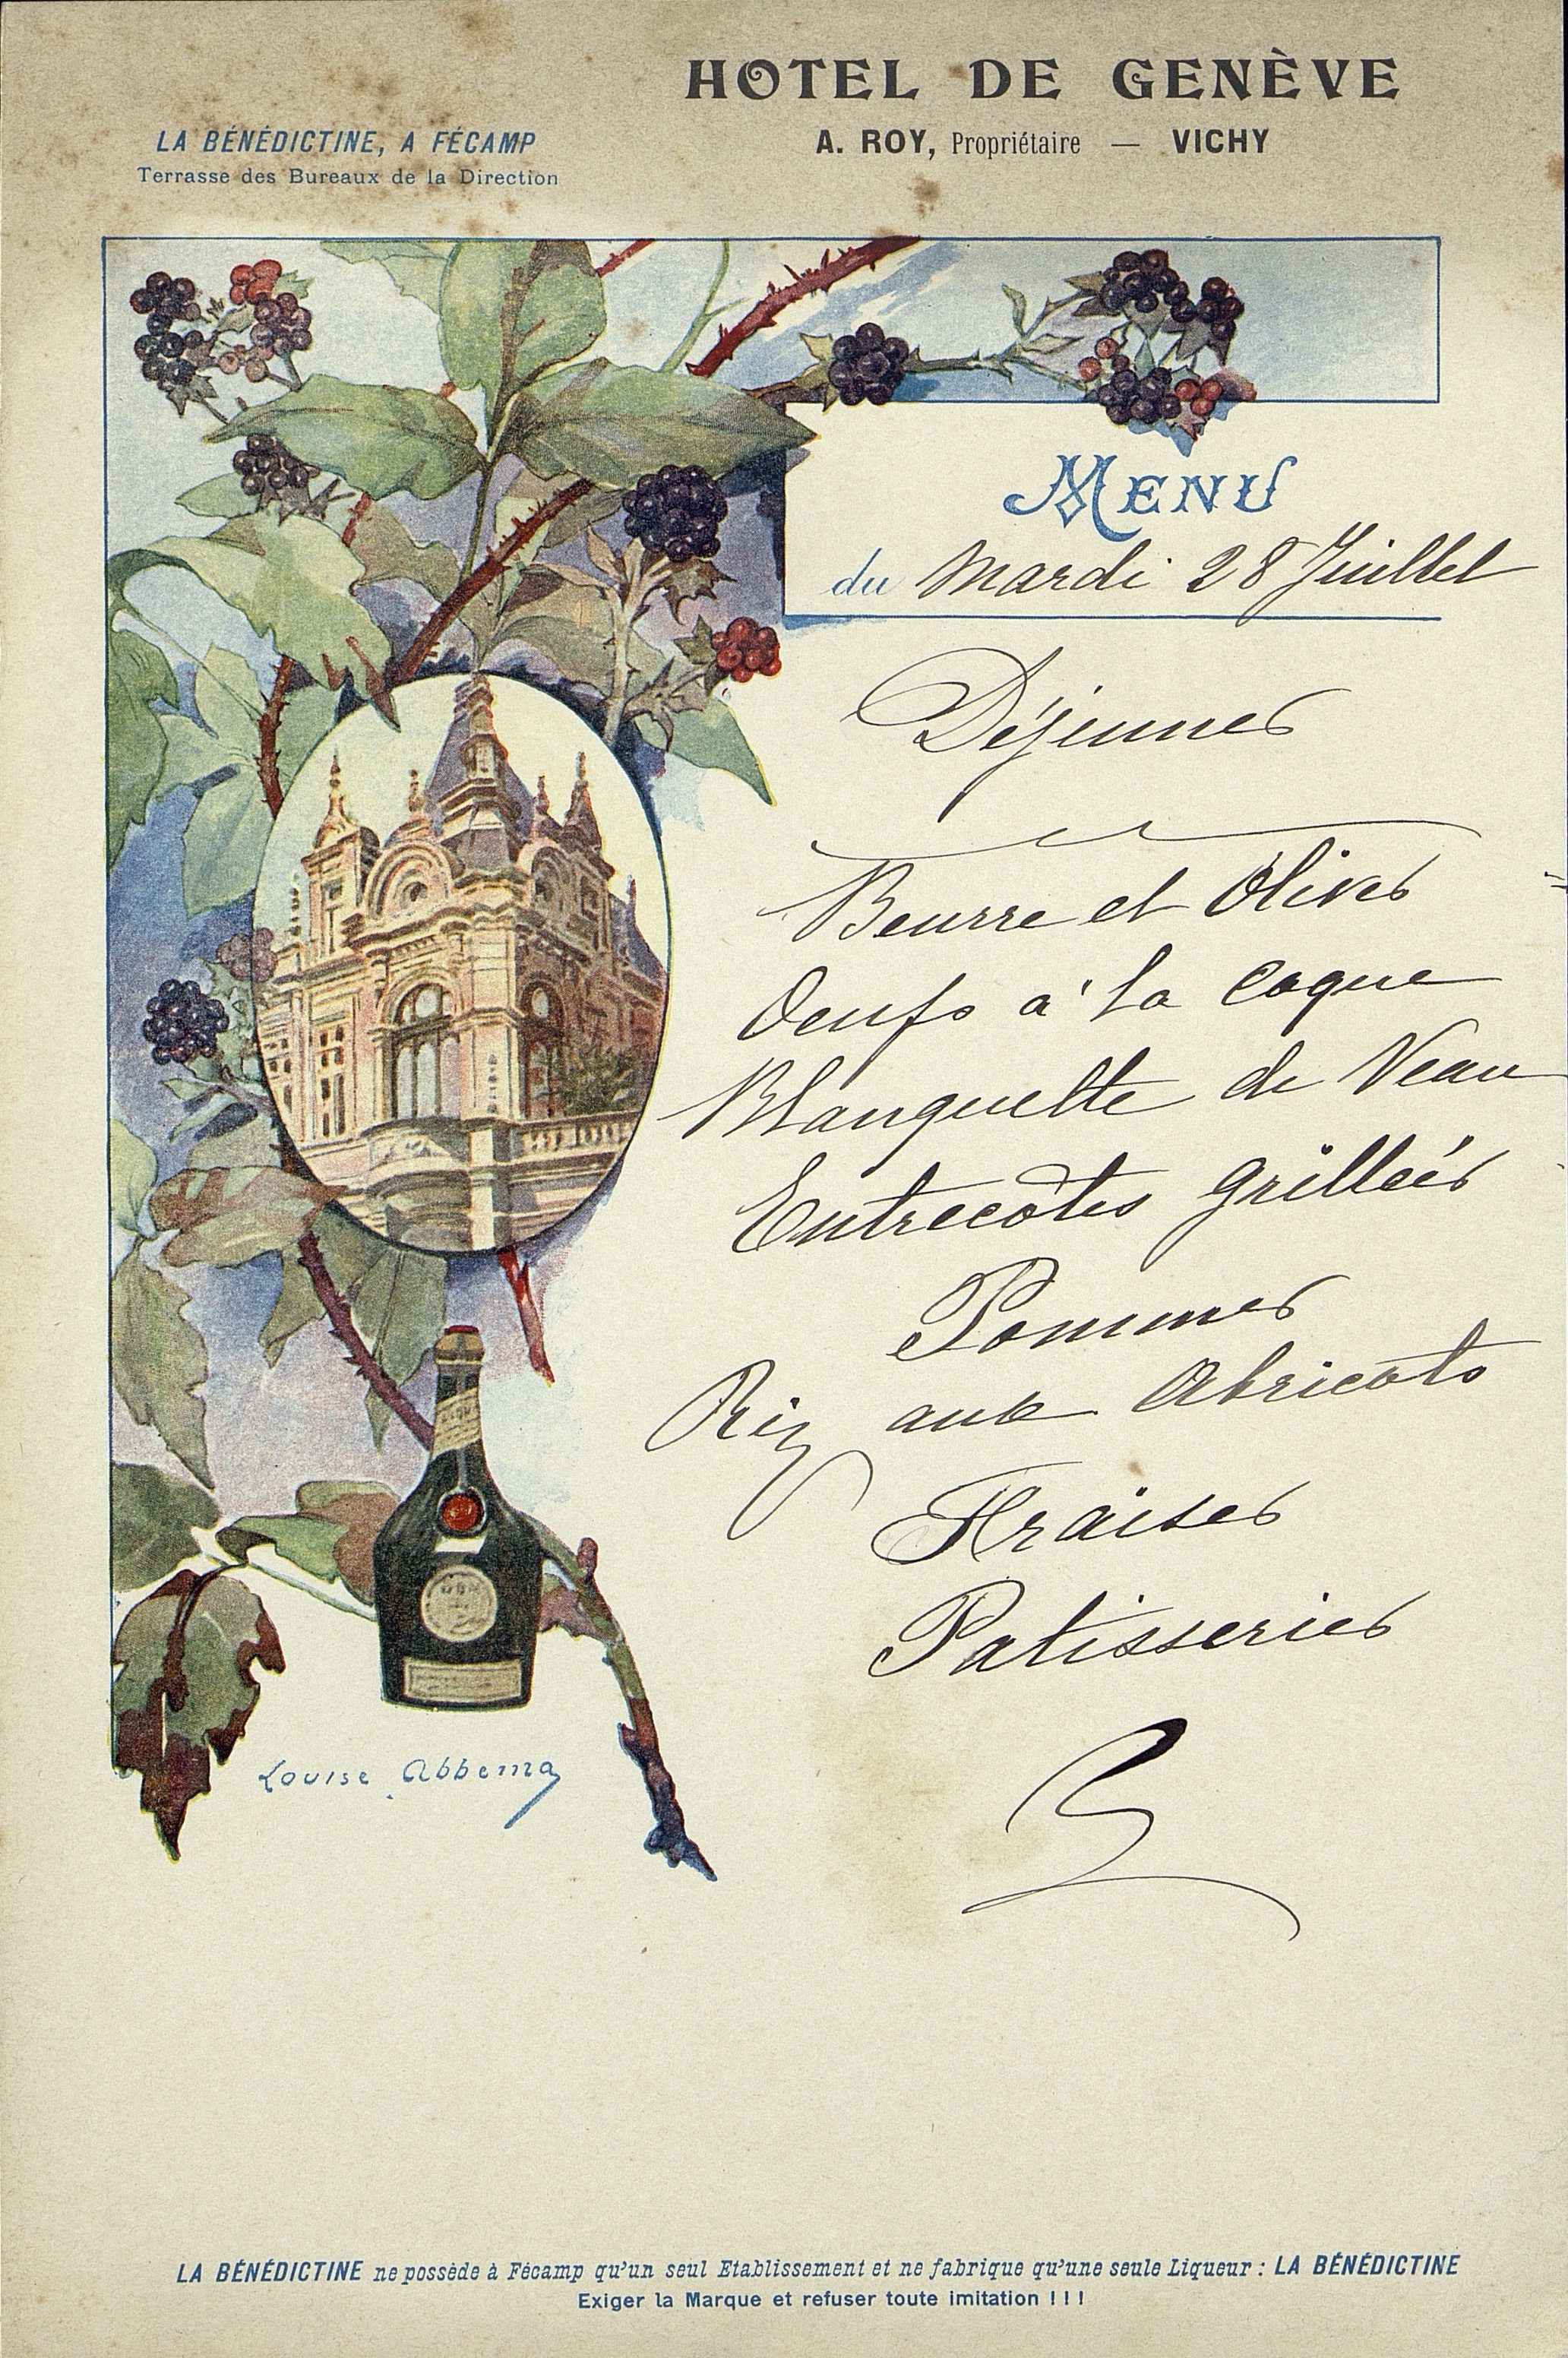 HOTEL DE GENÈVE
A. ROY, Propriétaire — VICHY
LA BÉNÉDICTINE, A FÉCAMP
Terrasse des Bureaux de la Direction
MENU
du Mardi 28 Juillet
Déjeuner
Beurre et Olives
Oeufs à la Coque
Blanquette de Veau
Entrecôtes grillées
Pommes
Riz aux Abricots
Fraises
Patisseries
Louise Abbema
LA BÉNÉDICTINE ne possède à Fécamp qu'un seul Etablissement et ne fabrique qu'une seule Liqueur : LA BÉNÉDICTINE
Exiger la Marque et refuser toute imitation !!!